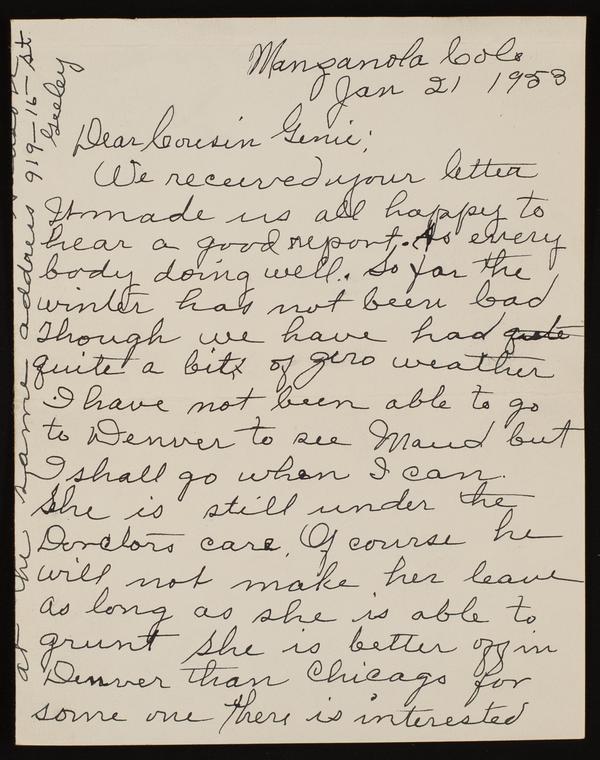 Manzanola Colo
Jan 21 1953
Dear Cousin Genie;
We received your letter
It made us all happy to
hear a good report. As every
body doing well. So far the
winter has not been bad
though we have had quite
quite a bit of zero weather
I have not been able to go
to Denver to see Maud but
I shall go when I can.
She is still under the
Dorctors care. Of course he
will not make her leave
as long as she is able to
grunt She is better off in
Denver than Chicago for
some one there is interested
at the same address 919-16-St.
Geeley